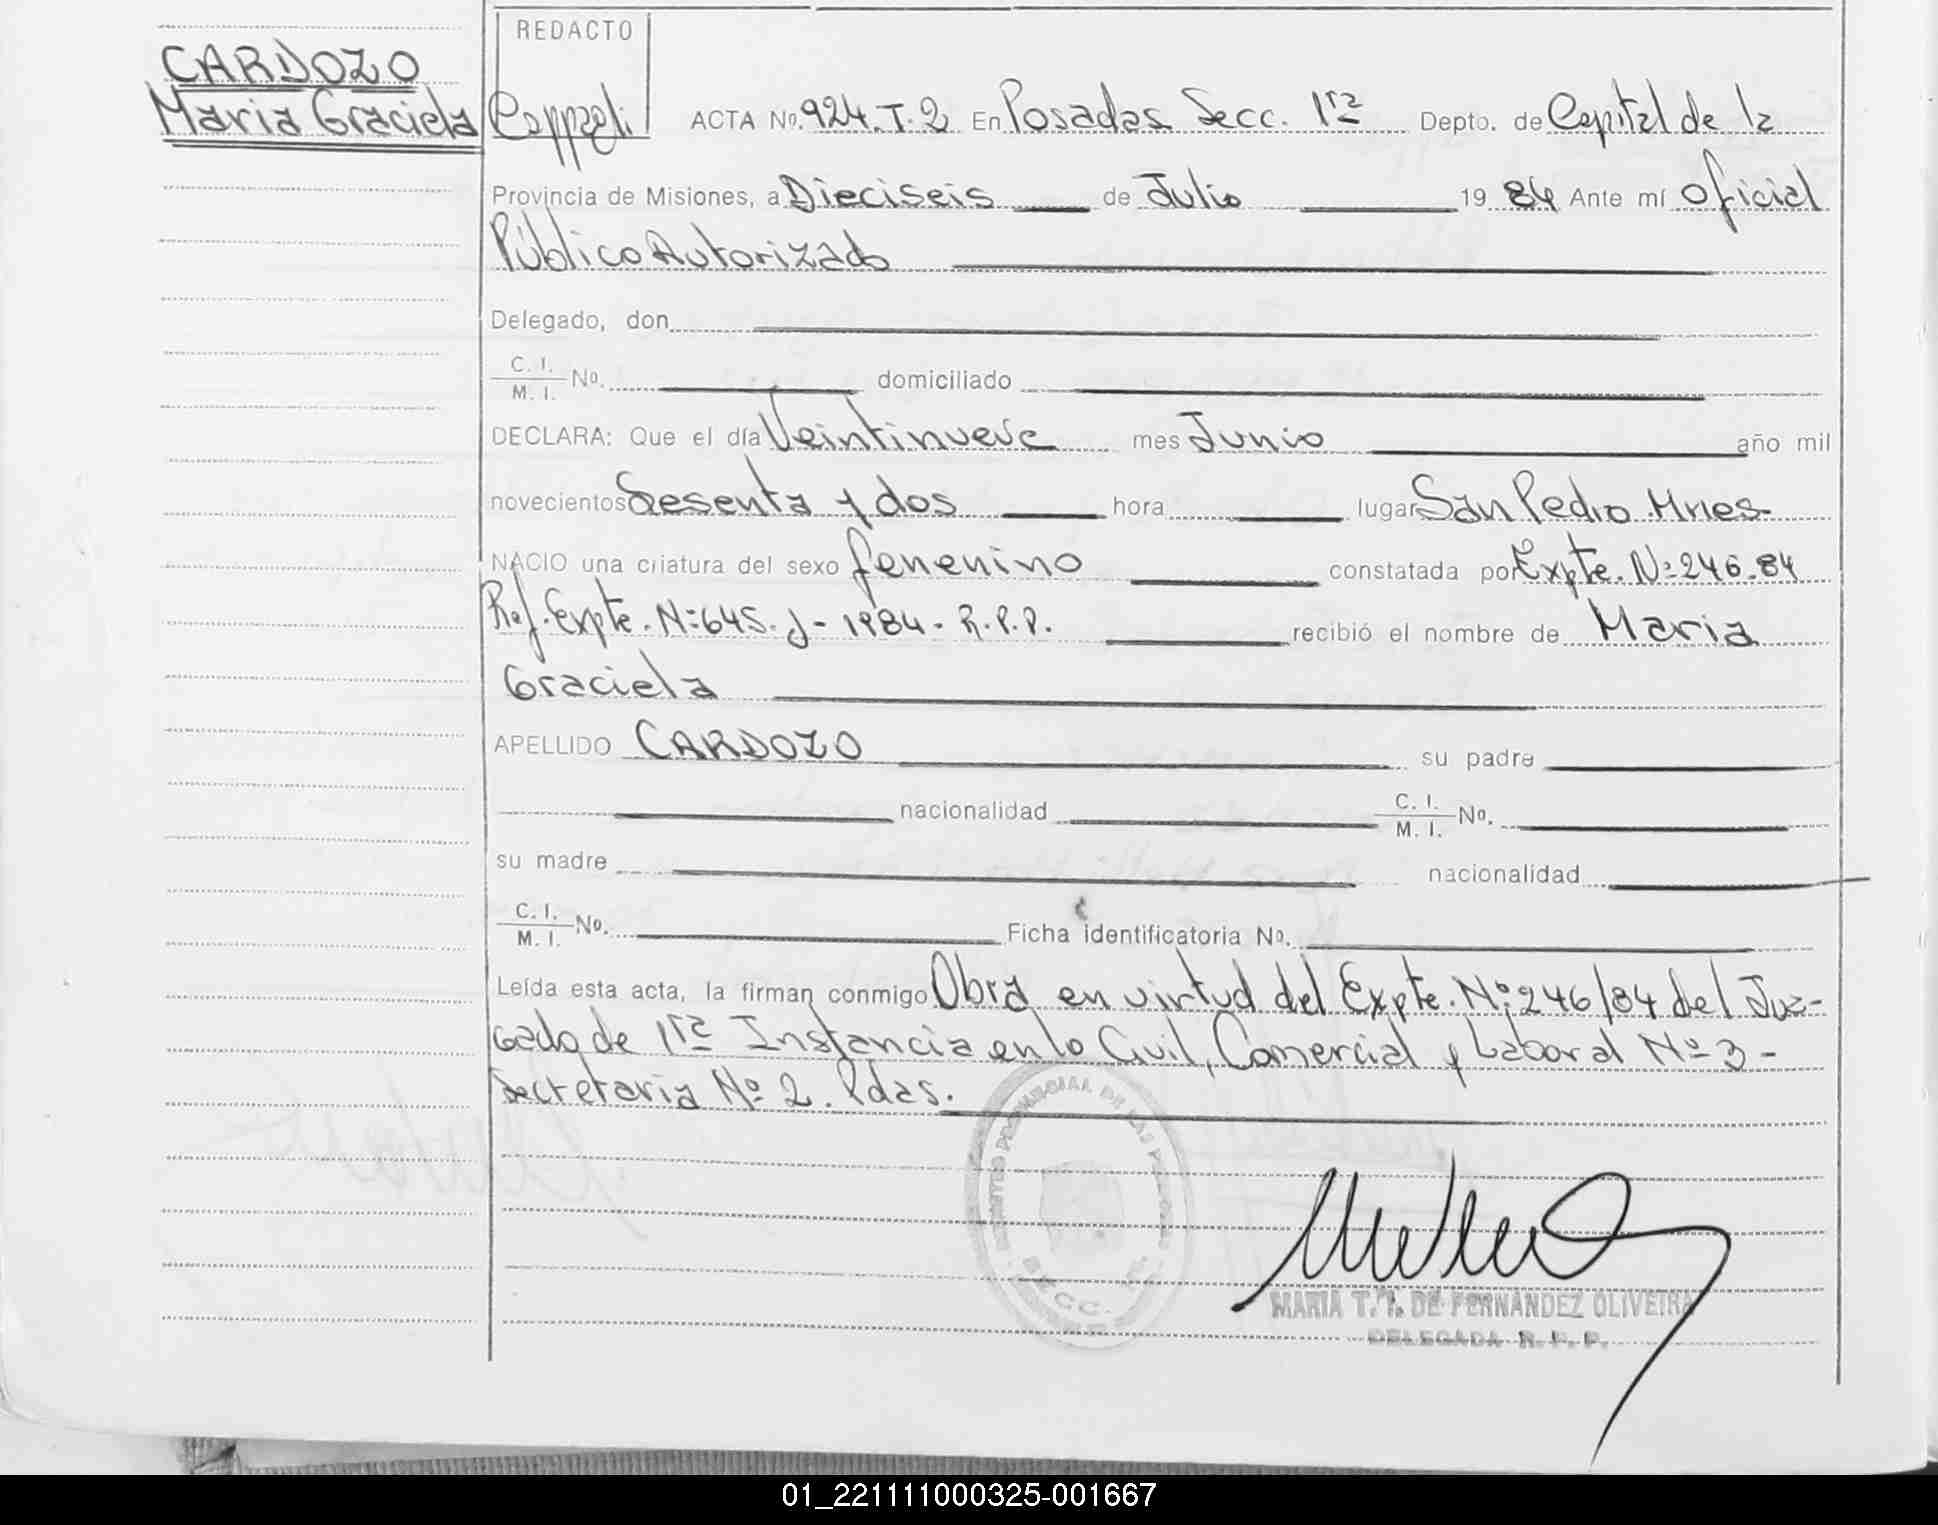 CARDOZO
Maria Graciela
REDACTO
ACTA Nº. 924. T. 2 En Posadas Secc. 1ra Depto. de Capital de la
Provincia de Misiones, a Dieciseis de Julio 19 84 Ante mí Oficial
Público Autorizado
Delegado, don
C. I. / M. I. Nº. domiciliado
DECLARA: Que el día Veintinueve mes Junio año mil
novecientos Sesenta y dos hora lugar San Pedro Mnes
NACIO una criatura del sexo femenino constatada por Expte. Nº 246.84
Ref. Expte. Nº 645. J - 1984 - R.P.P. recibió el nombre de Maria
Graciela
APELLIDO CARDOZO su padre
nacionalidad C. I. / M. I. Nº.
su madre nacionalidad
C. I. / M. I. Nº. Ficha identificatoria Nº.
Leída esta acta, la firman conmigo Obra en virtud del Expte. Nº 246/84 del Juz-
gado de 1ra Instancia en lo Civil, Comercial y Laboral Nº 3 -
Secretaria Nº 2. Pdas.
REGISTRO PROVINCIAL DE LAS PERSONAS
SECC. 1ra
MARIA T. T. DE FERNANDEZ OLIVEIRA
DELEGADA R. P. P.
01_221111000325-001667